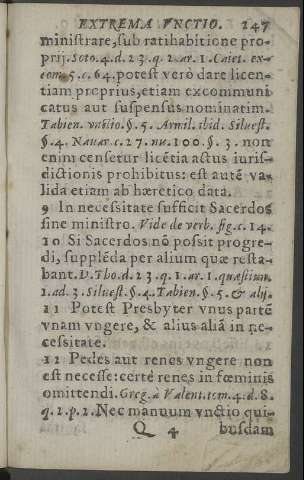 EXTREMA VNCTIO. 247
ministrare, sub ratihabitione pro-
prij. Soto.4.d.23.q.2.ar.1. Caiet. ex-
com.5.c.64. potest verò dare licen-
tiam proprius, etiam excommuni
catus aut suspensus nominatim.
Tabien. vnctio.§.5. Armil. ibid. Siluest.
§.4. Nauar.c.27.nu.100.§.3. non
enim censetur licẽtia actus iuris-
dictionis prohibitus: est autẽ va-
lida etiam ab hæretico data.
9 In necessitate sufficit Sacerdos
sine ministro. Vide de verb. sig.c.14.
10 Si Sacerdos nõ possit progre-
di, supplẽda per alium quæ resta-
bant. D.Tho.d.23.q.1.ar.1.quæstiun.
1.ad.3. Siluest.§.4. Tabien.§.5. & alij.
11 Potest Presbyter vnus partẽ
vnam vngere, & alius aliã in ne-
cessitate.
12 Pedes aut renes vngere non
est necesse: certè renes in fœminis
omittendi. Greg. à Valent.tom.4.d.8.
q.1.p.2. Nec manuum vnctio qui-
Q 4 busdam